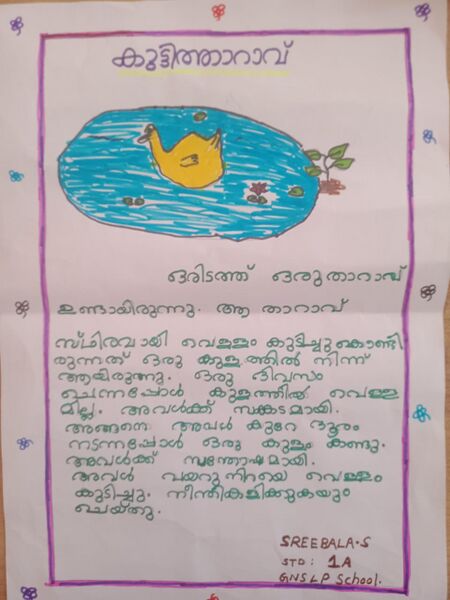 കുട്ടിത്താറാവ്
ഒരിടത്ത് ഒരു താറാവ്
ഉണ്ടായിരുന്നു. ആ താറാവ്
സ്ഥിരമായി വെള്ളം കുടിച്ചുകൊണ്ടി
രുന്നത് ഒരു കുളത്തിൽ നിന്ന്
ആയിരുന്നു. ഒരു ദിവസം
ചെന്നപ്പോൾ കുളത്തിൽ വെള്ള
മില്ല. അവൾക്ക് സങ്കടമായി.
അങ്ങനെ അവൾ കുറേ ദൂരം
നടന്നപ്പോൾ ഒരു കുളം കണ്ടു.
അവൾക്ക് സന്തോഷമായി.
അവൾ വയറുനിറയെ വെള്ളം
കുടിച്ചു. നീന്തികളിക്കുകയും
ചെയ്തു.
SREEBALA.S
STD: 1A
GNSLP School.